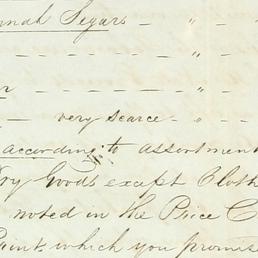 nnah Segars — " — "
— — — — " — "
r — — — — " —
— very scarce — " —
according to assortment
ry Goods except Cloth
noted in the Price C
Paint, which you promise